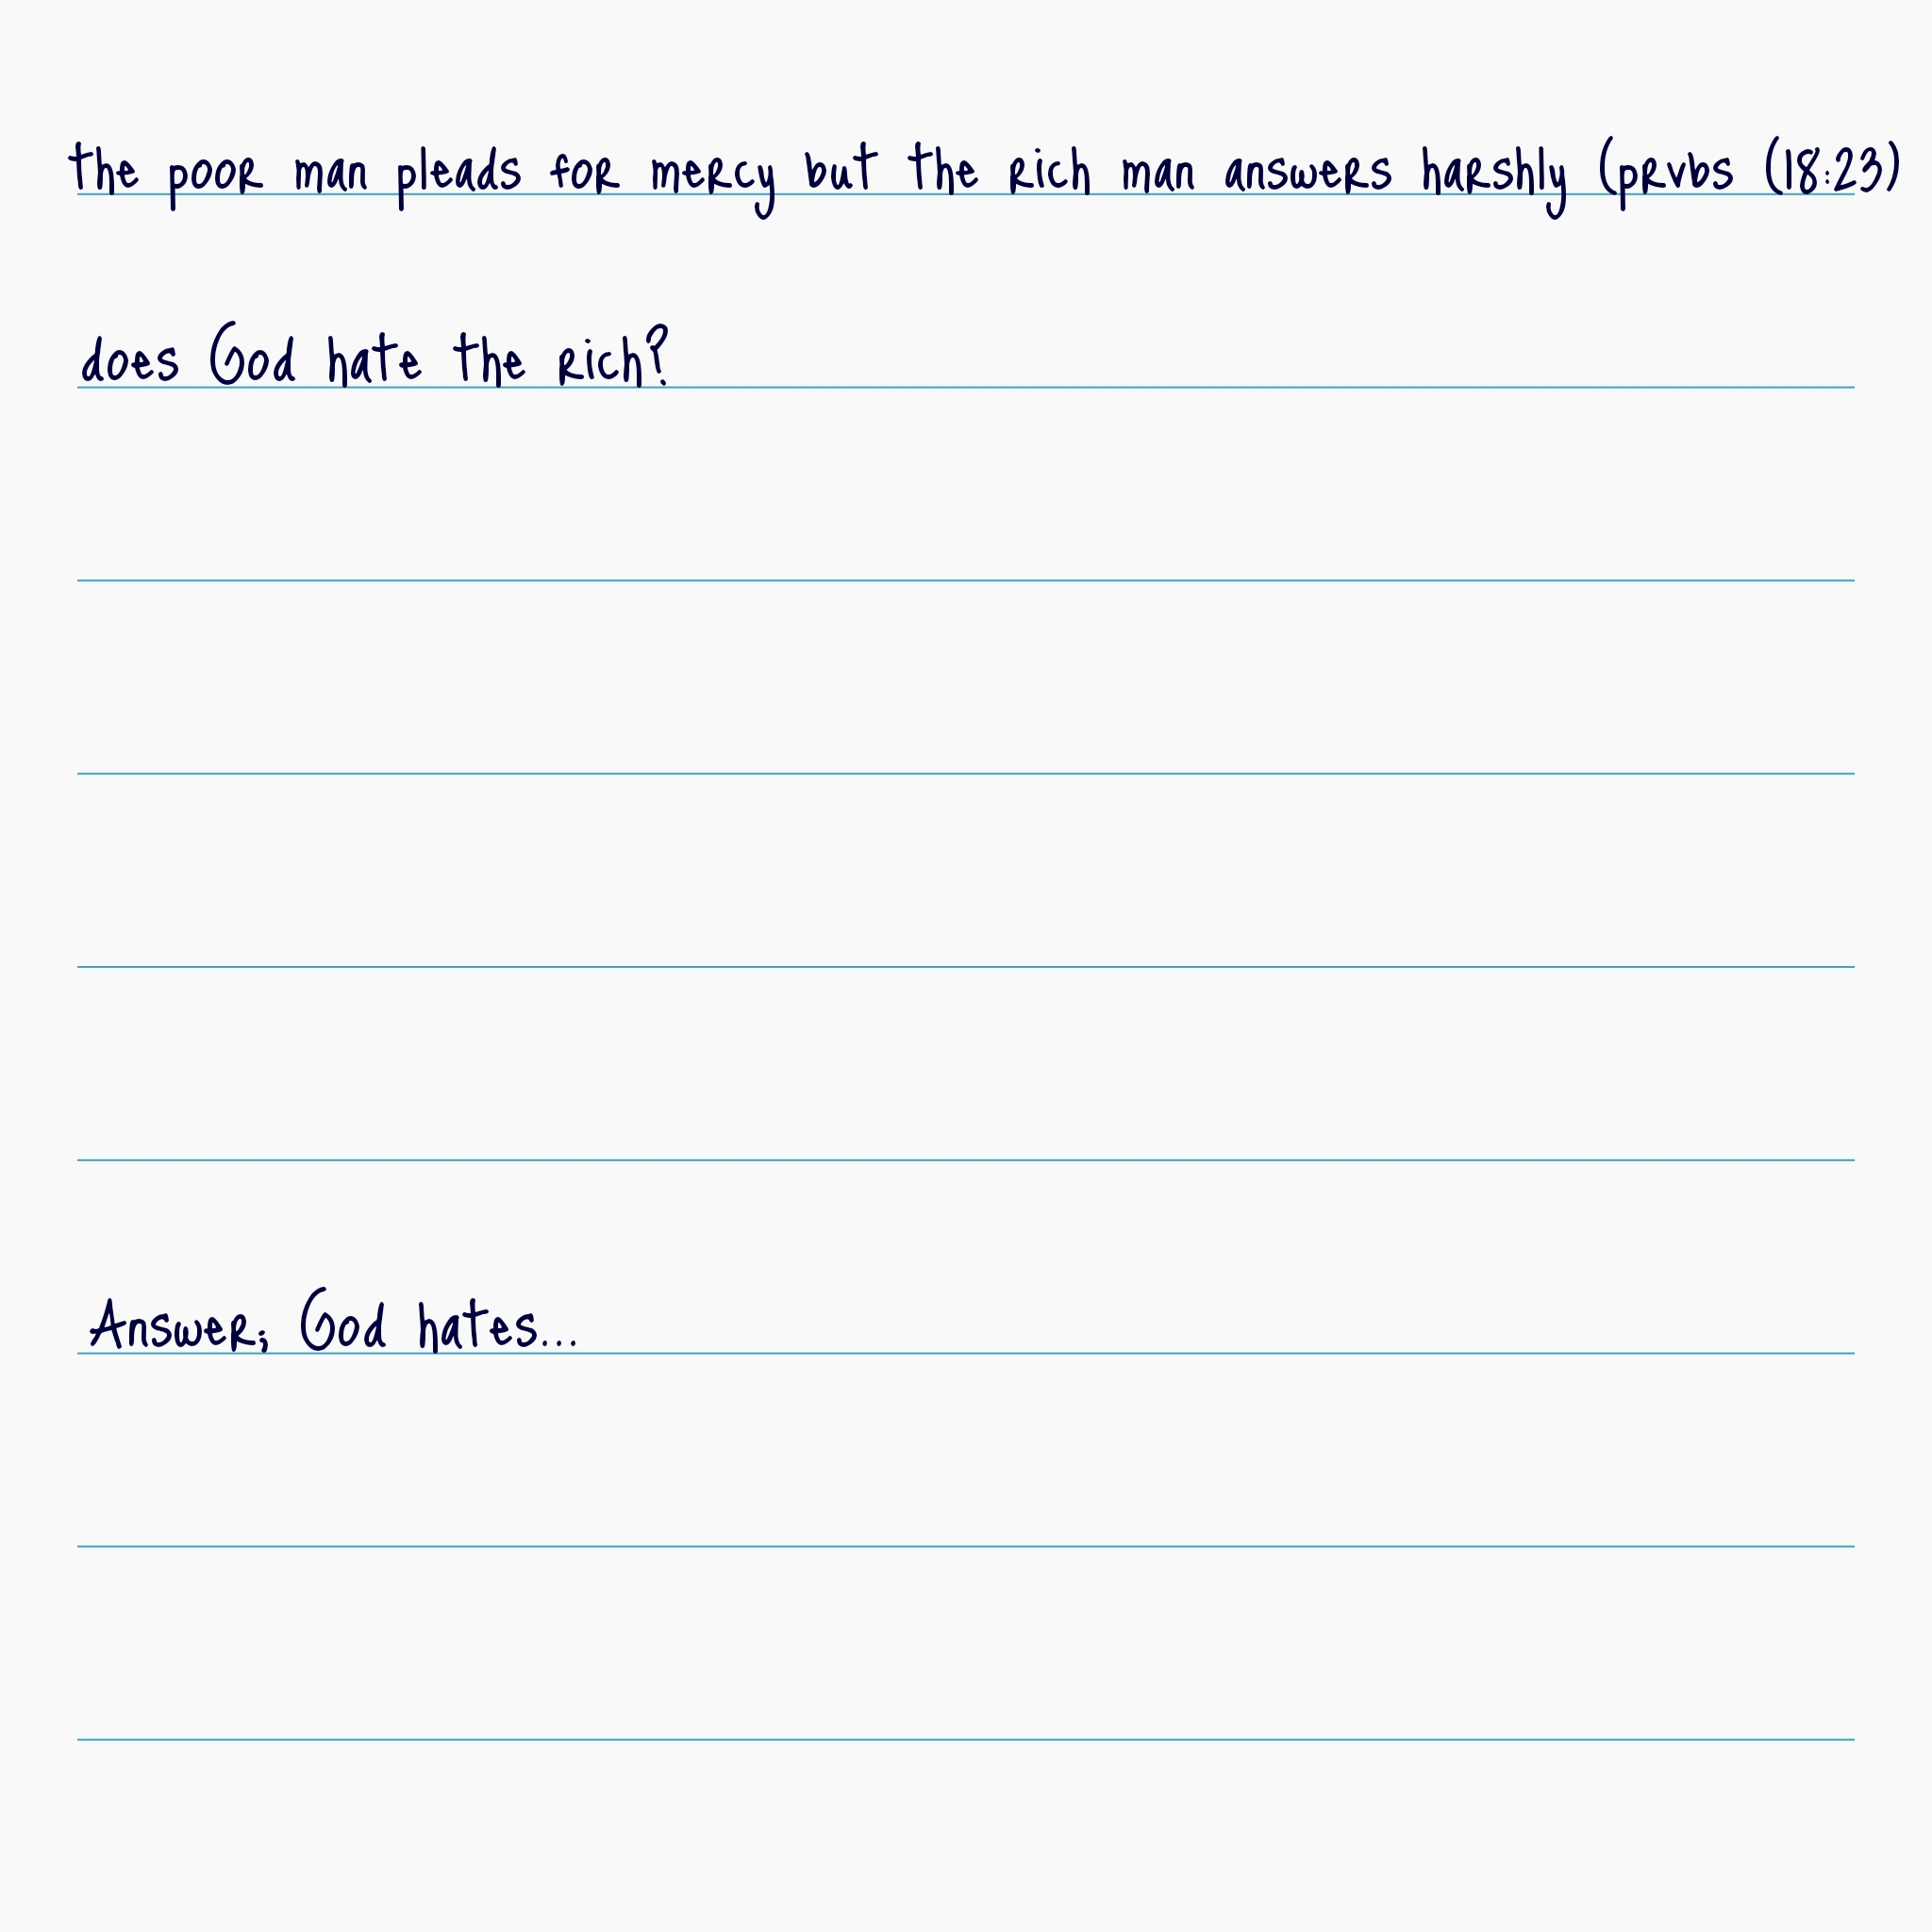 the poor man pleads for mercy but the rich man answers harshly (prvbs (18:23)
does God hate the rich?
Answer; God hates...